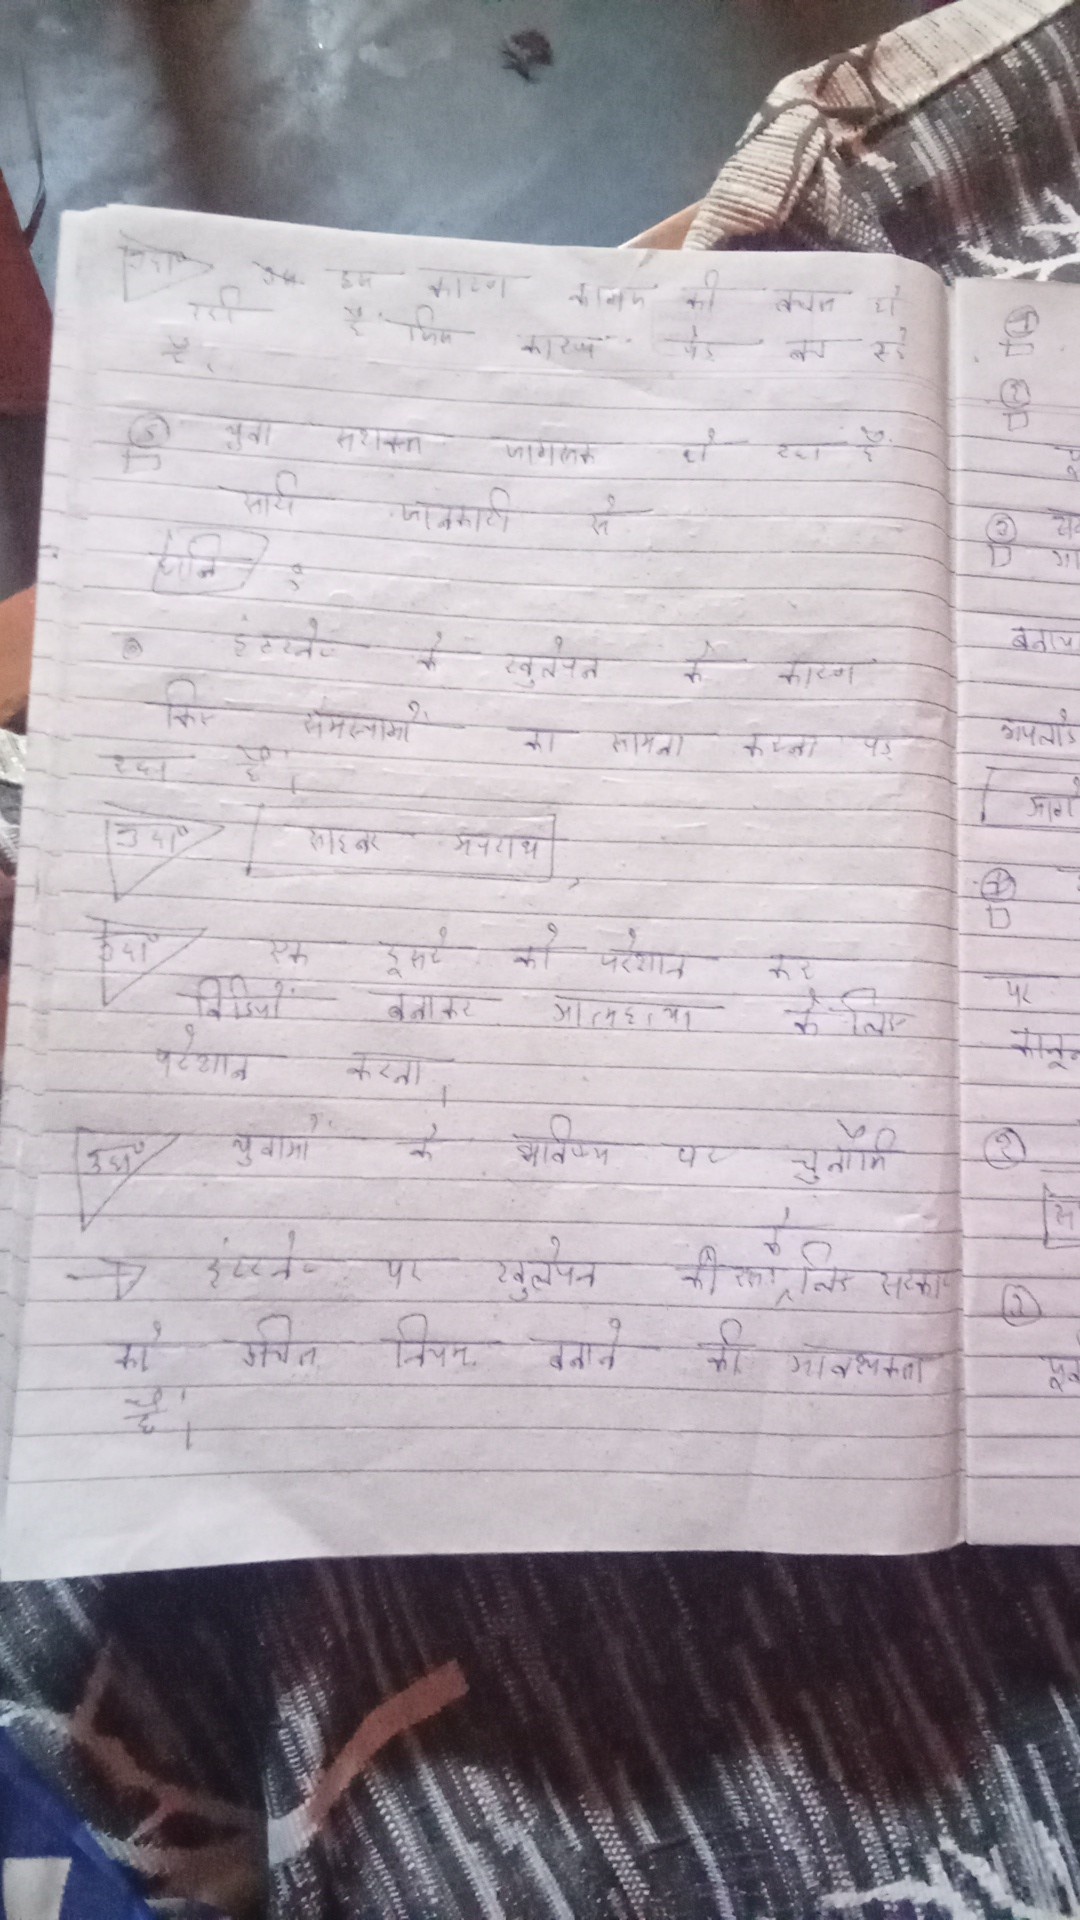 उदा० इस कारण कागज की बचत हो
रही हैं जिस कारण पेड़ बच रहे
है,
⑤ युवा सशक्त जागरूक हो रहा हैं
सारी जानकारी से
हानि :
इंटरनेट के खुलेपन के कारण
किए समस्याओं का सामना करना पड़
रहा हैं।
उदा० साइबर अपराध,
उदा० एक दूसरे को परेशान कर
विडियों बनाकर आत्महत्या के लिए
परेशान करना।
उदा० युवाओं के भविष्य पर चुनौति
→ इंटरनेट पर खुलेपन की के लिए सरकार
को उचित नियम बनाने की आवश्यकता
हैं।
①
②
③
④
पर
②
③